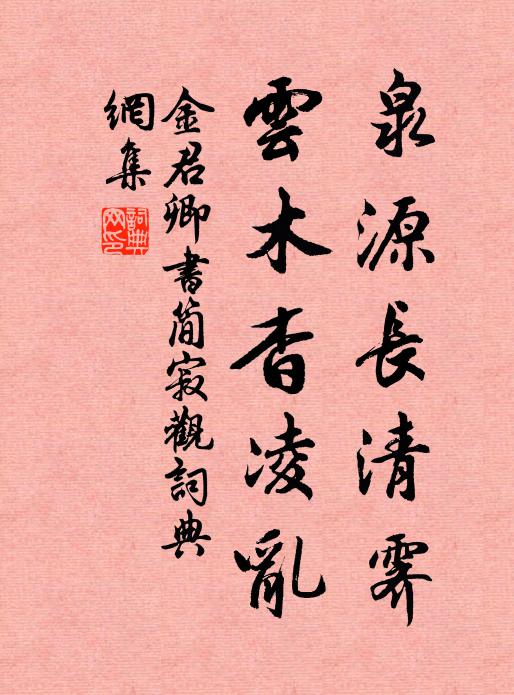 泉源長清霽
雲木杳凌亂
金君卿書簡寂觀詞典
網集
詞典網印